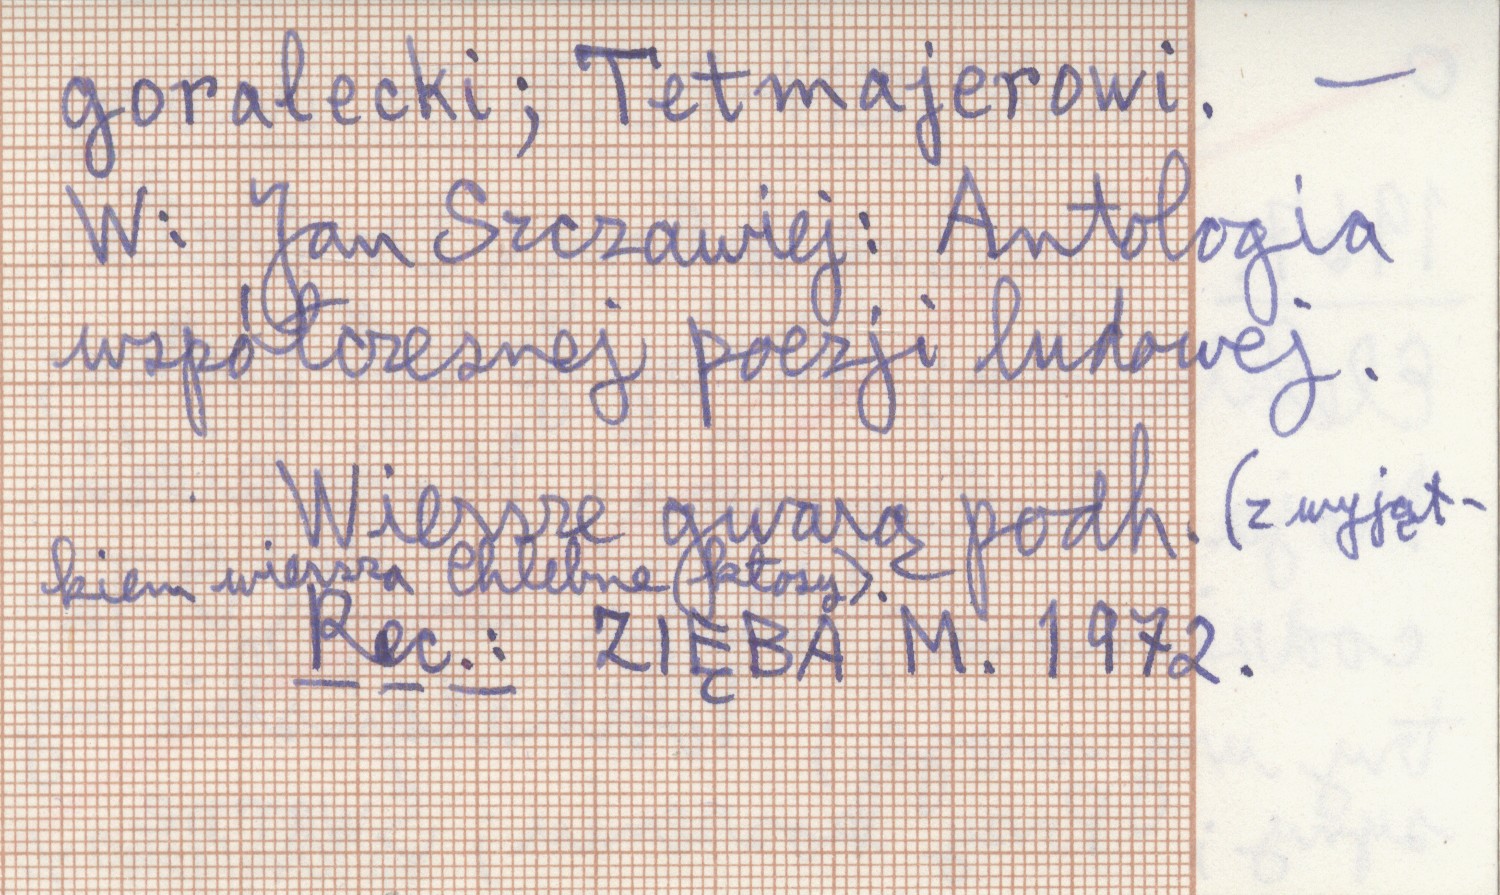 goralecki; Tetmajerowi. —
W: Jan Szczawiej: Antologia
współczesnej poezji ludowej.
Wiersze gwarą podh. (z wyjąt-
kiem wiersza Chlebne (kłosy).
Rec.: ZIĘBA M. 1972.